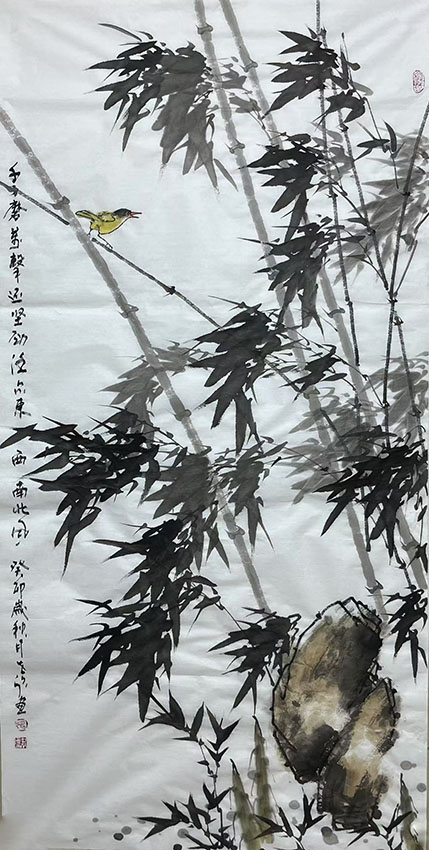 千万磨万击还坚劲任尔东西南北风癸卯岁秋月